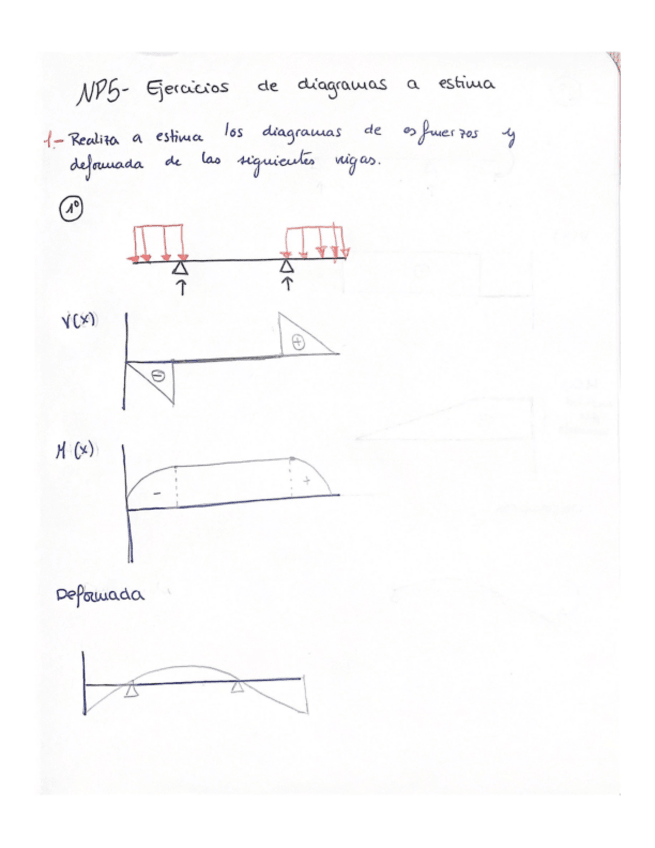 NP5- Ejercicios de diagramas a estima
1.- Realiza a estima los diagramas de esfuerzos y
deformada de las siguientes vigas.
1º
V(x)
⊕
⊖
M (x)
- +
Deformada